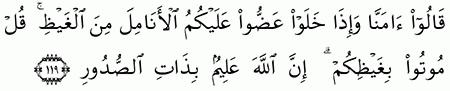 قَالُوٓا۟ ءَامَنَّا وَإِذَا خَلَوْا۟ عَضُّوا۟ عَلَيْكُمُ ٱلْأَنَامِلَ مِنَ ٱلْغَيْظِ ۚ قُلْ
مُوتُوا۟ بِغَيْظِكُمْ ۗ إِنَّ ٱللَّهَ عَلِيمٌۢ بِذَاتِ ٱلصُّدُورِ ﴿١١٩﴾